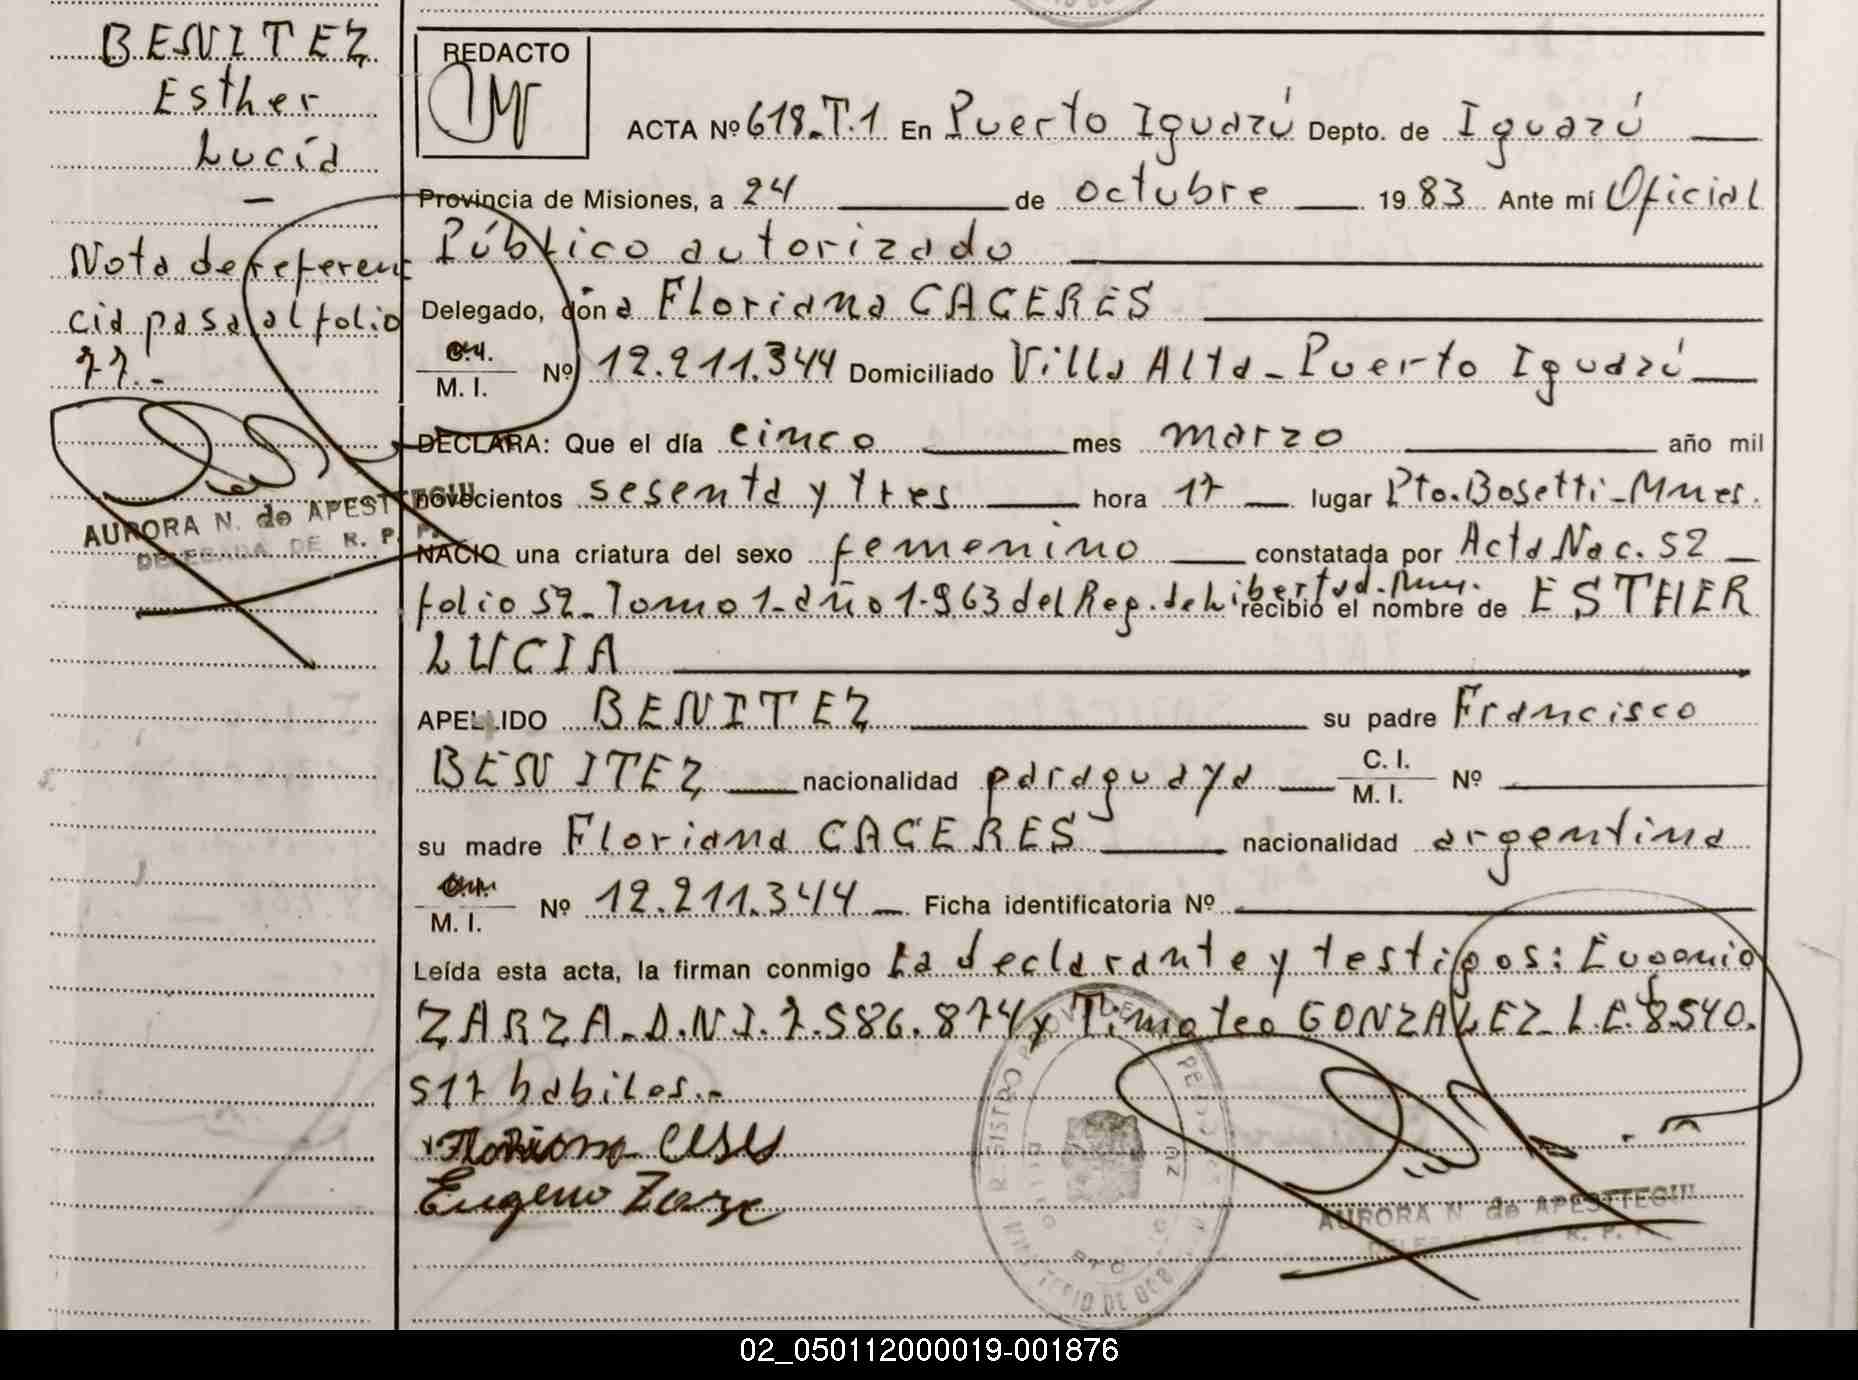 BENITEZ
Esther
Lucía
—
Nota de referen
cia pasa al folio
77.-
AURORA N. de APESTTEGUI
DELEGADA DE R. P. P.
REDACTO
ACTA Nº 618-T.1 En Puerto Iguazú Depto. de Iguazú
Provincia de Misiones, a 24 de octubre 1983 Ante mí Oficial
Público autorizado
Delegado, doña Floriana CACERES
M. I. Nº 12.211.344 Domiciliado Villa Alta - Puerto Iguazú
DECLARA: Que el día cinco mes marzo año mil
novecientos sesenta y tres hora 17 lugar Pto. Bosetti - Mnes.
NACIO una criatura del sexo femenino constatada por Acta Nac. 52
folio 52 - Tomo 1 - año 1.963 del Reg. de Libertad - recibió el nombre de ESTHER
LUCIA
APELLIDO BENITEZ su padre Francisco
BENITEZ nacionalidad paraguaya C. I. M. I. Nº
su madre Floriana CACERES nacionalidad argentina
M. I. Nº 12.211.344 Ficha identificatoria Nº
Leída esta acta, la firman conmigo La declarante y testigos: Eugenio
ZARZA - D.N.I. 7.586.874 y Timoteo GONZALEZ - L.E. 8.540.
517 habiles.-
Eugenio Zarze
AURORA N. de APESTTEGUI
02_050112000019-001876